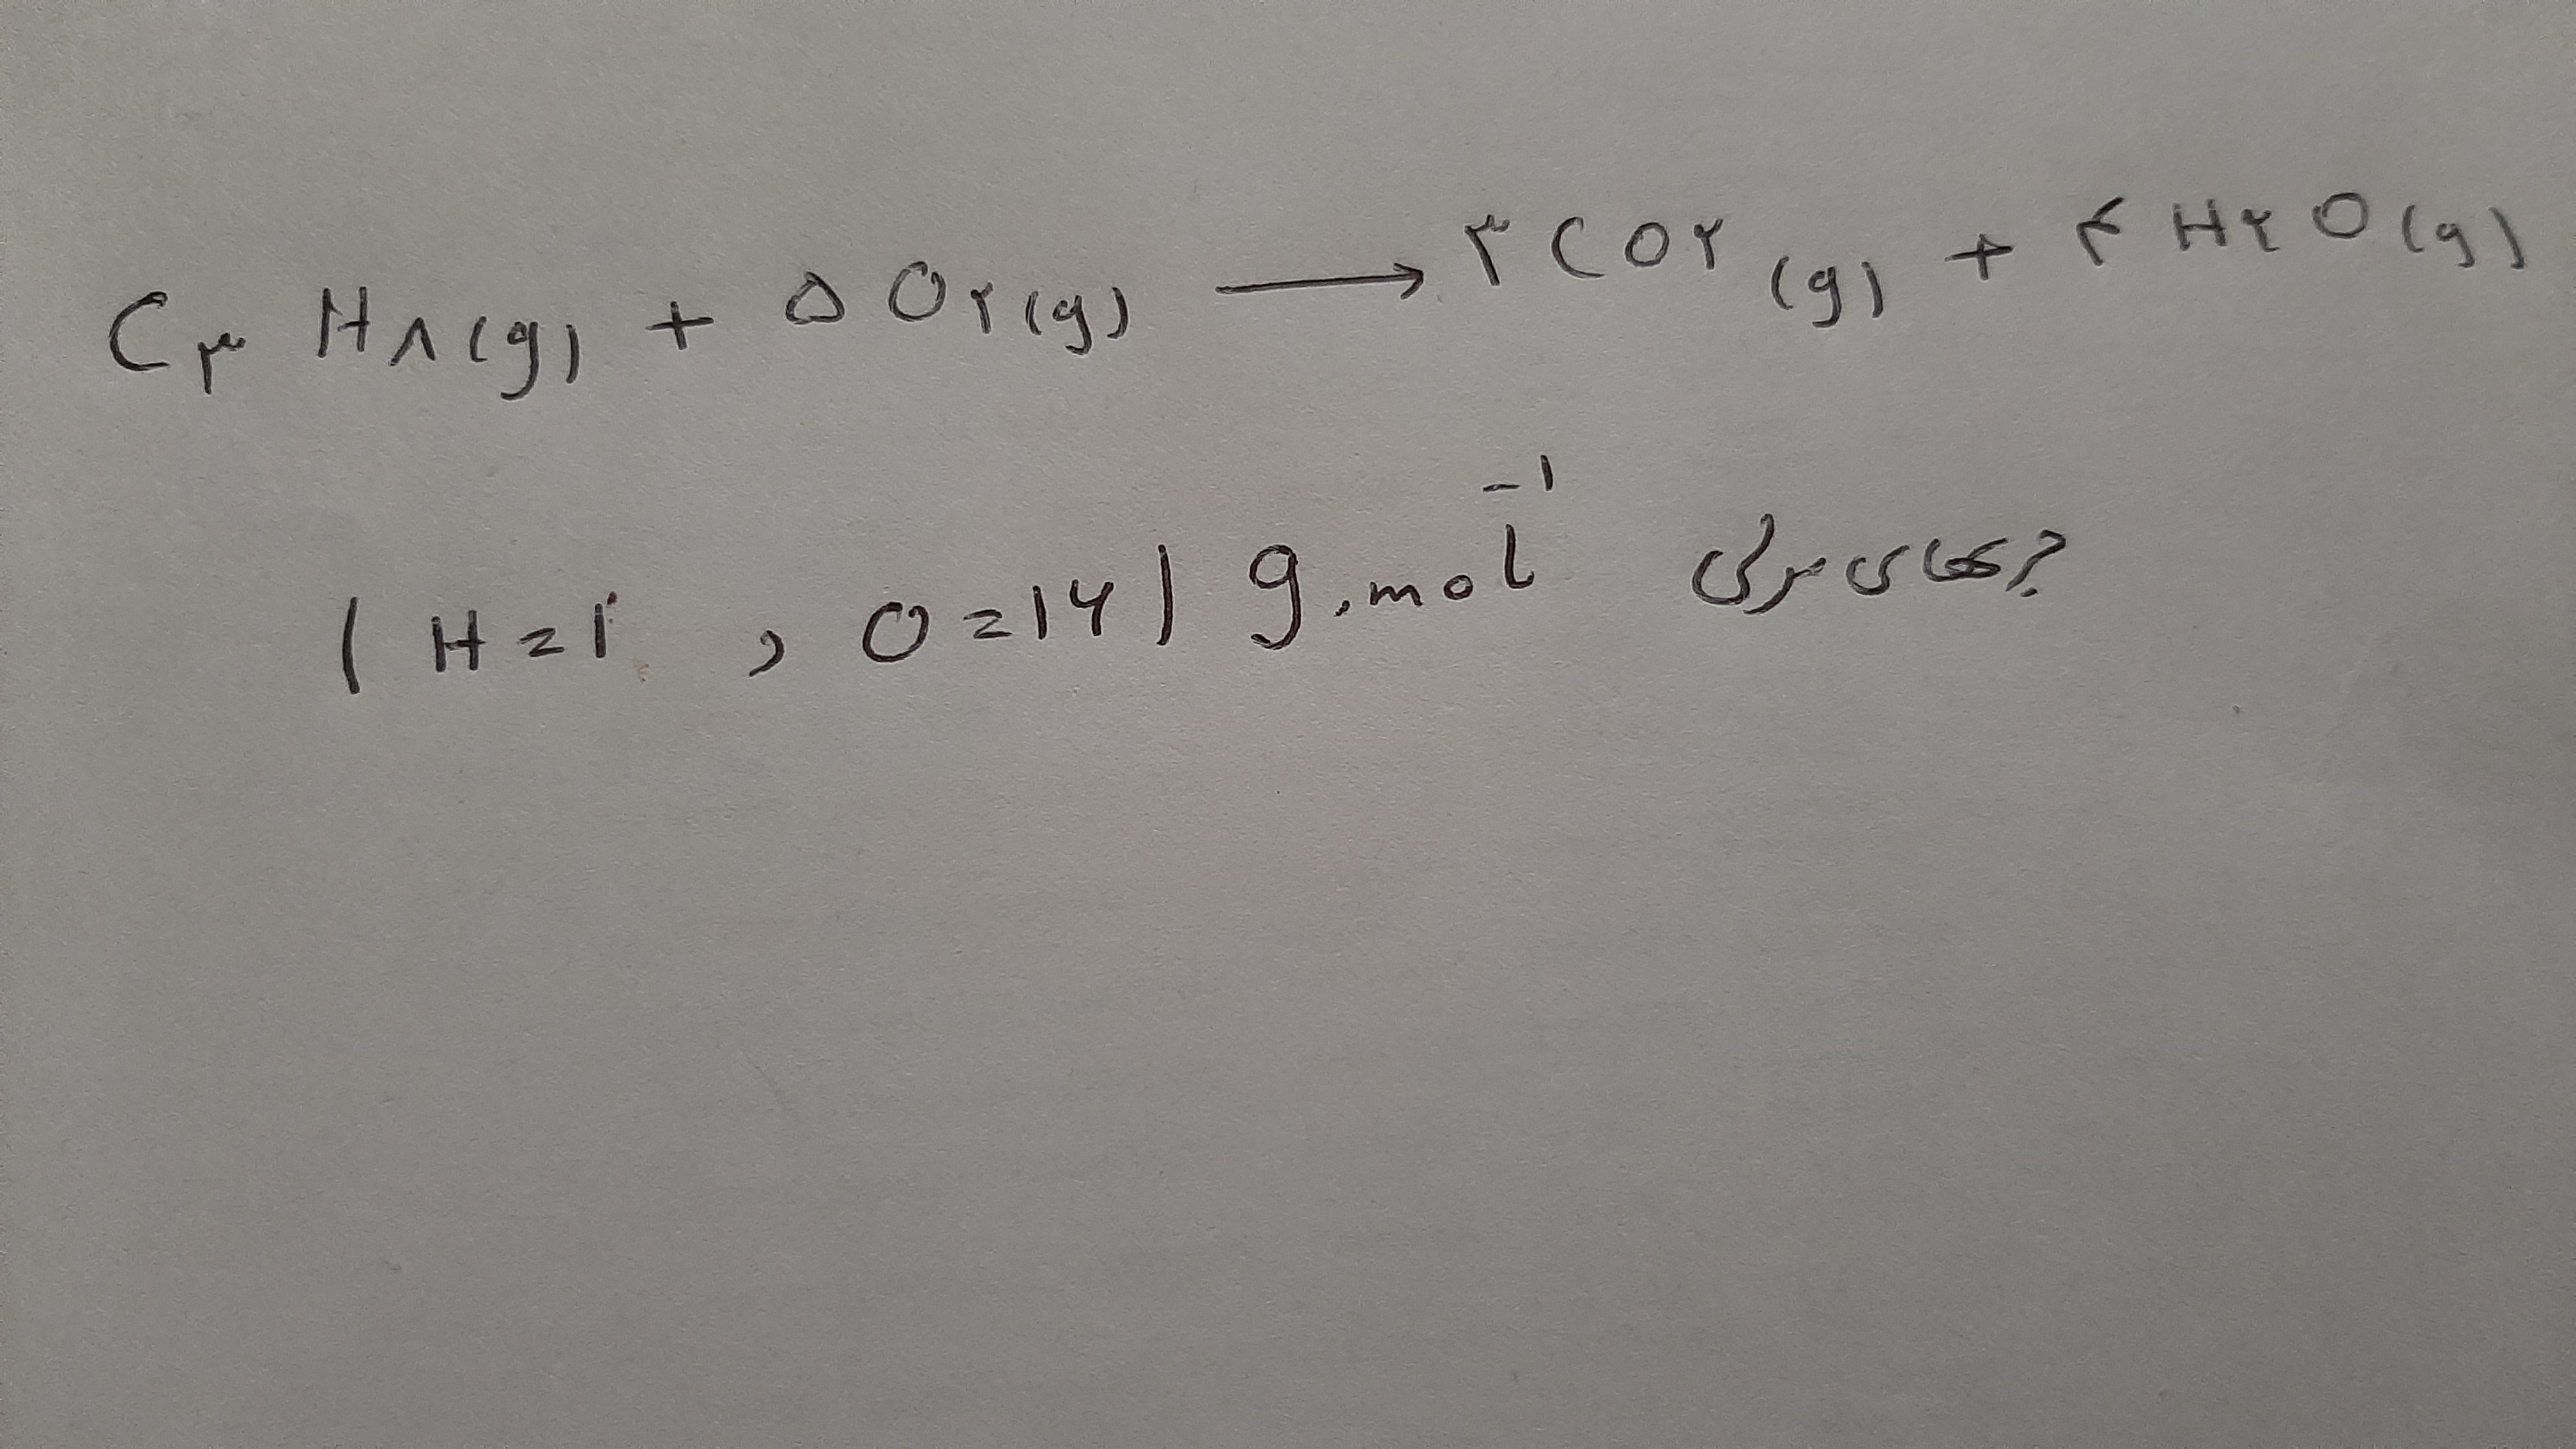 C۳H۸(g) + ۵O۲(g) → ۳CO۲(g) + ۴H۲O(g)
(H=۱ , O=۱۶) g.mol⁻¹